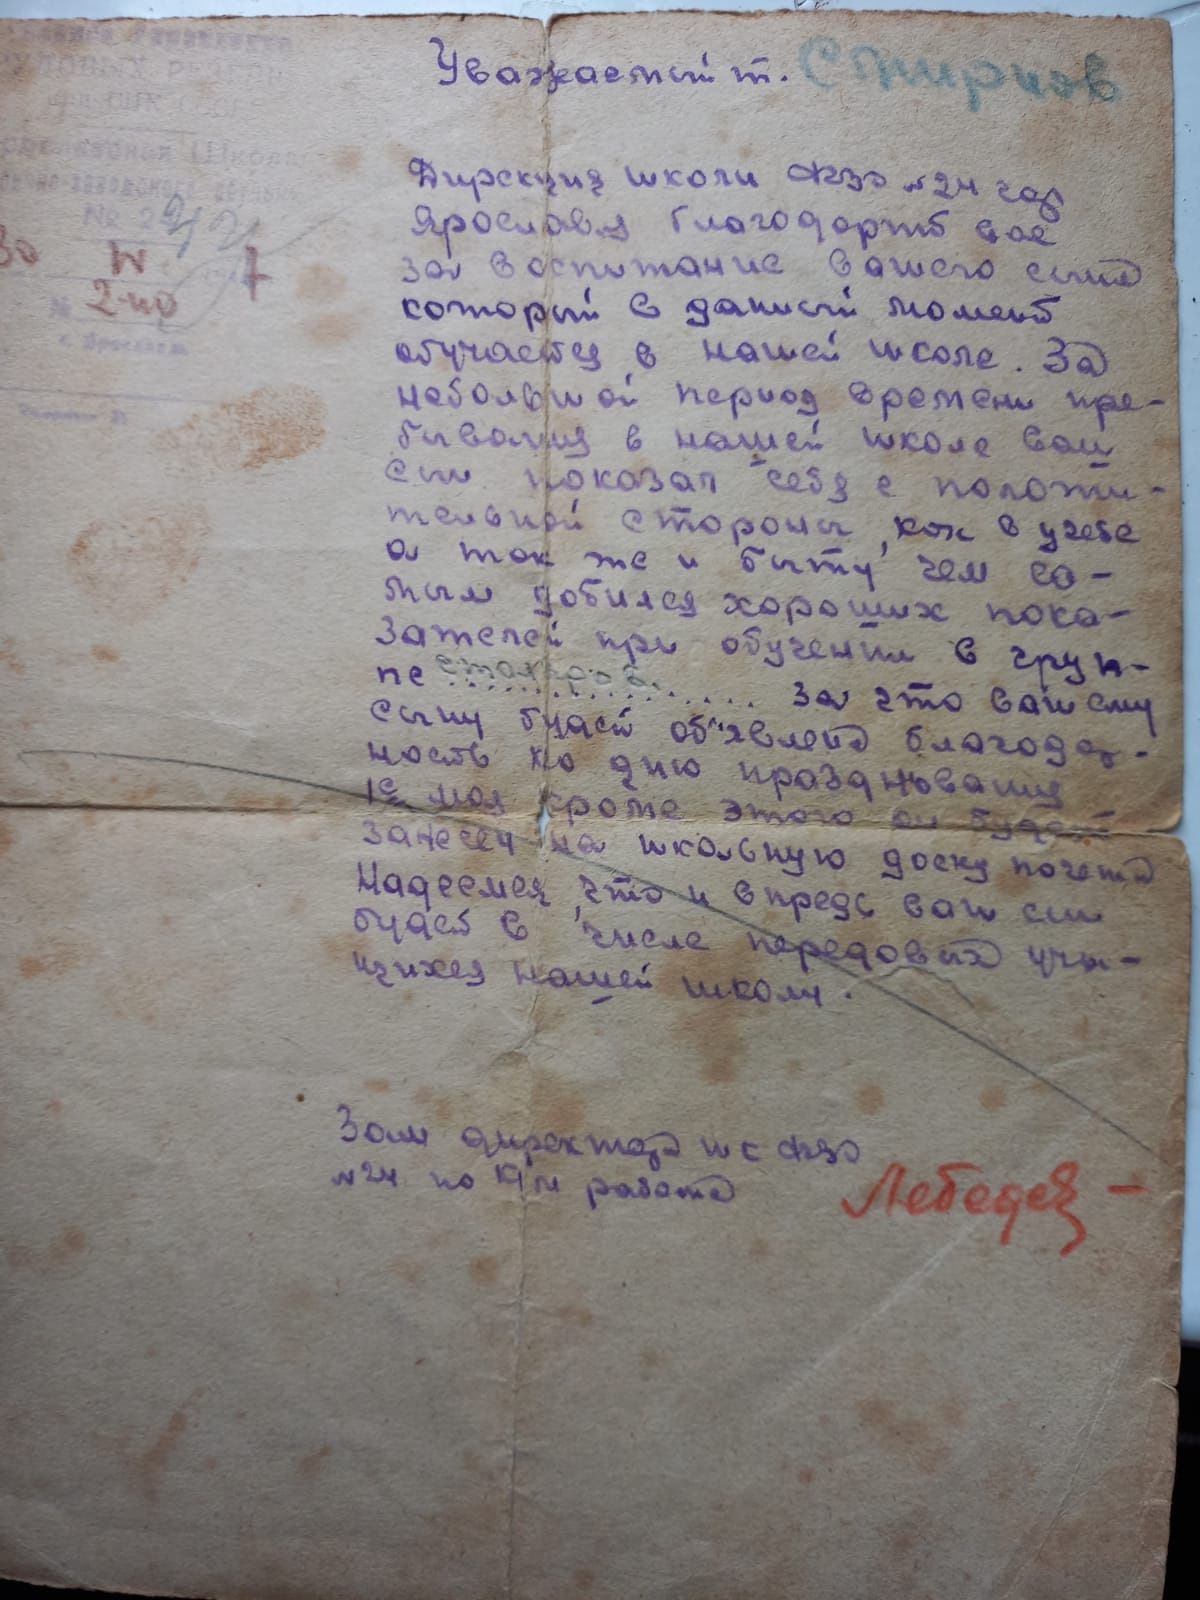 ТРУДОВЫХ РЕЗЕРВ
Школа
№ 24
30 IV 7
2-но
г. Ярославль
Уважаемый т. Смирнов
Дирекция школы ФЗО №24 гор
Ярославля благодарит вас
за воспитание вашего сына
который в данный момент
обучается в нашей школе. За
небольшой период времени пре-
бывания в нашей школе ваш
сын показал себя с положи-
тельной стороны, как в учебе
а так же и быту, чем са-
мым добился хороших пока-
зателей при обучении в груп-
пе столяров. за что вашему
сыну будет об"явлена благодар-
ность ко дню празднования
1е мая кроме этого он будет
занесен на школьную доску почета
Надеемся, что и впредь ваш сын
будет в числе передовых уча-
щихся нашей школы.
Зам директора шк ФЗО
№24 по к/м работе Лебедев